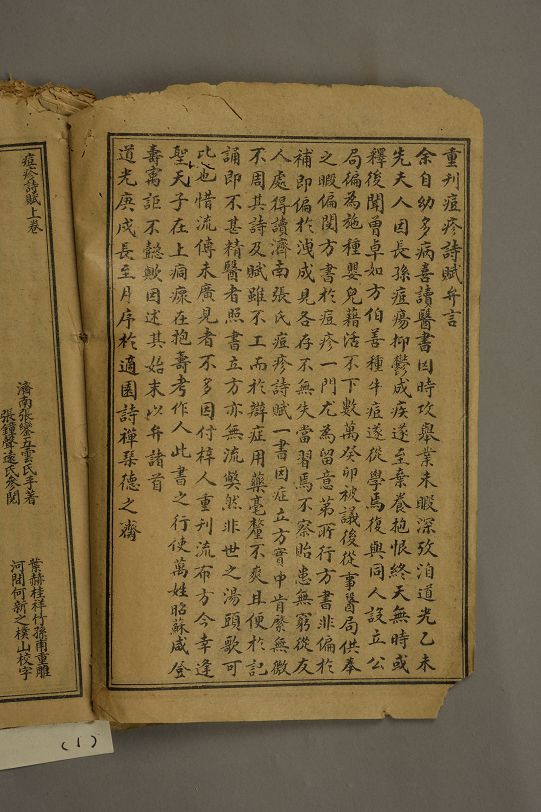 重刊痘疹詩賦弁言
余自幼多病喜讀醫書因時攻舉業未暇深攷洎道光乙未
先夫人因長孫痘瘍抑鬱成疾遂至棄養抱恨終天無時或
釋後聞曾卓如方伯善種牛痘遂從學焉復與同人設立公
局徧為施種嬰兒藉活不下數萬癸卯被議後從事醫局供奉
之暇偏閱方書於痘疹一門尤為留意第所行方書非偏於
補即偏於洩成見各存不無失當習焉不察貽患無窮從友
人處得讀濟南張氏痘疹詩賦一書因症立方實中肯綮無微
不周其詩及賦雖不工而於辯症用藥毫釐不爽且便於記
誦即不甚精醫者照書立方亦無流獘然非世之湯頭歌可
比也惜流傳未廣見者不多因付梓人重刊流布方今幸逢
聖天子在上痌瘝在抱壽考作人此書之行使萬姓昭蘇咸登
壽㝢詎不懿歟因述其始末以弁諸首
道光庚戌長至月序於適園詩禪琴德之齋
痘疹詩賦上卷
濟南張鑾五雲氏手著
張鐘聲遠氏參閱
葉赫桂祥竹孫甫重雕
河間何新之樸山校字
(1)